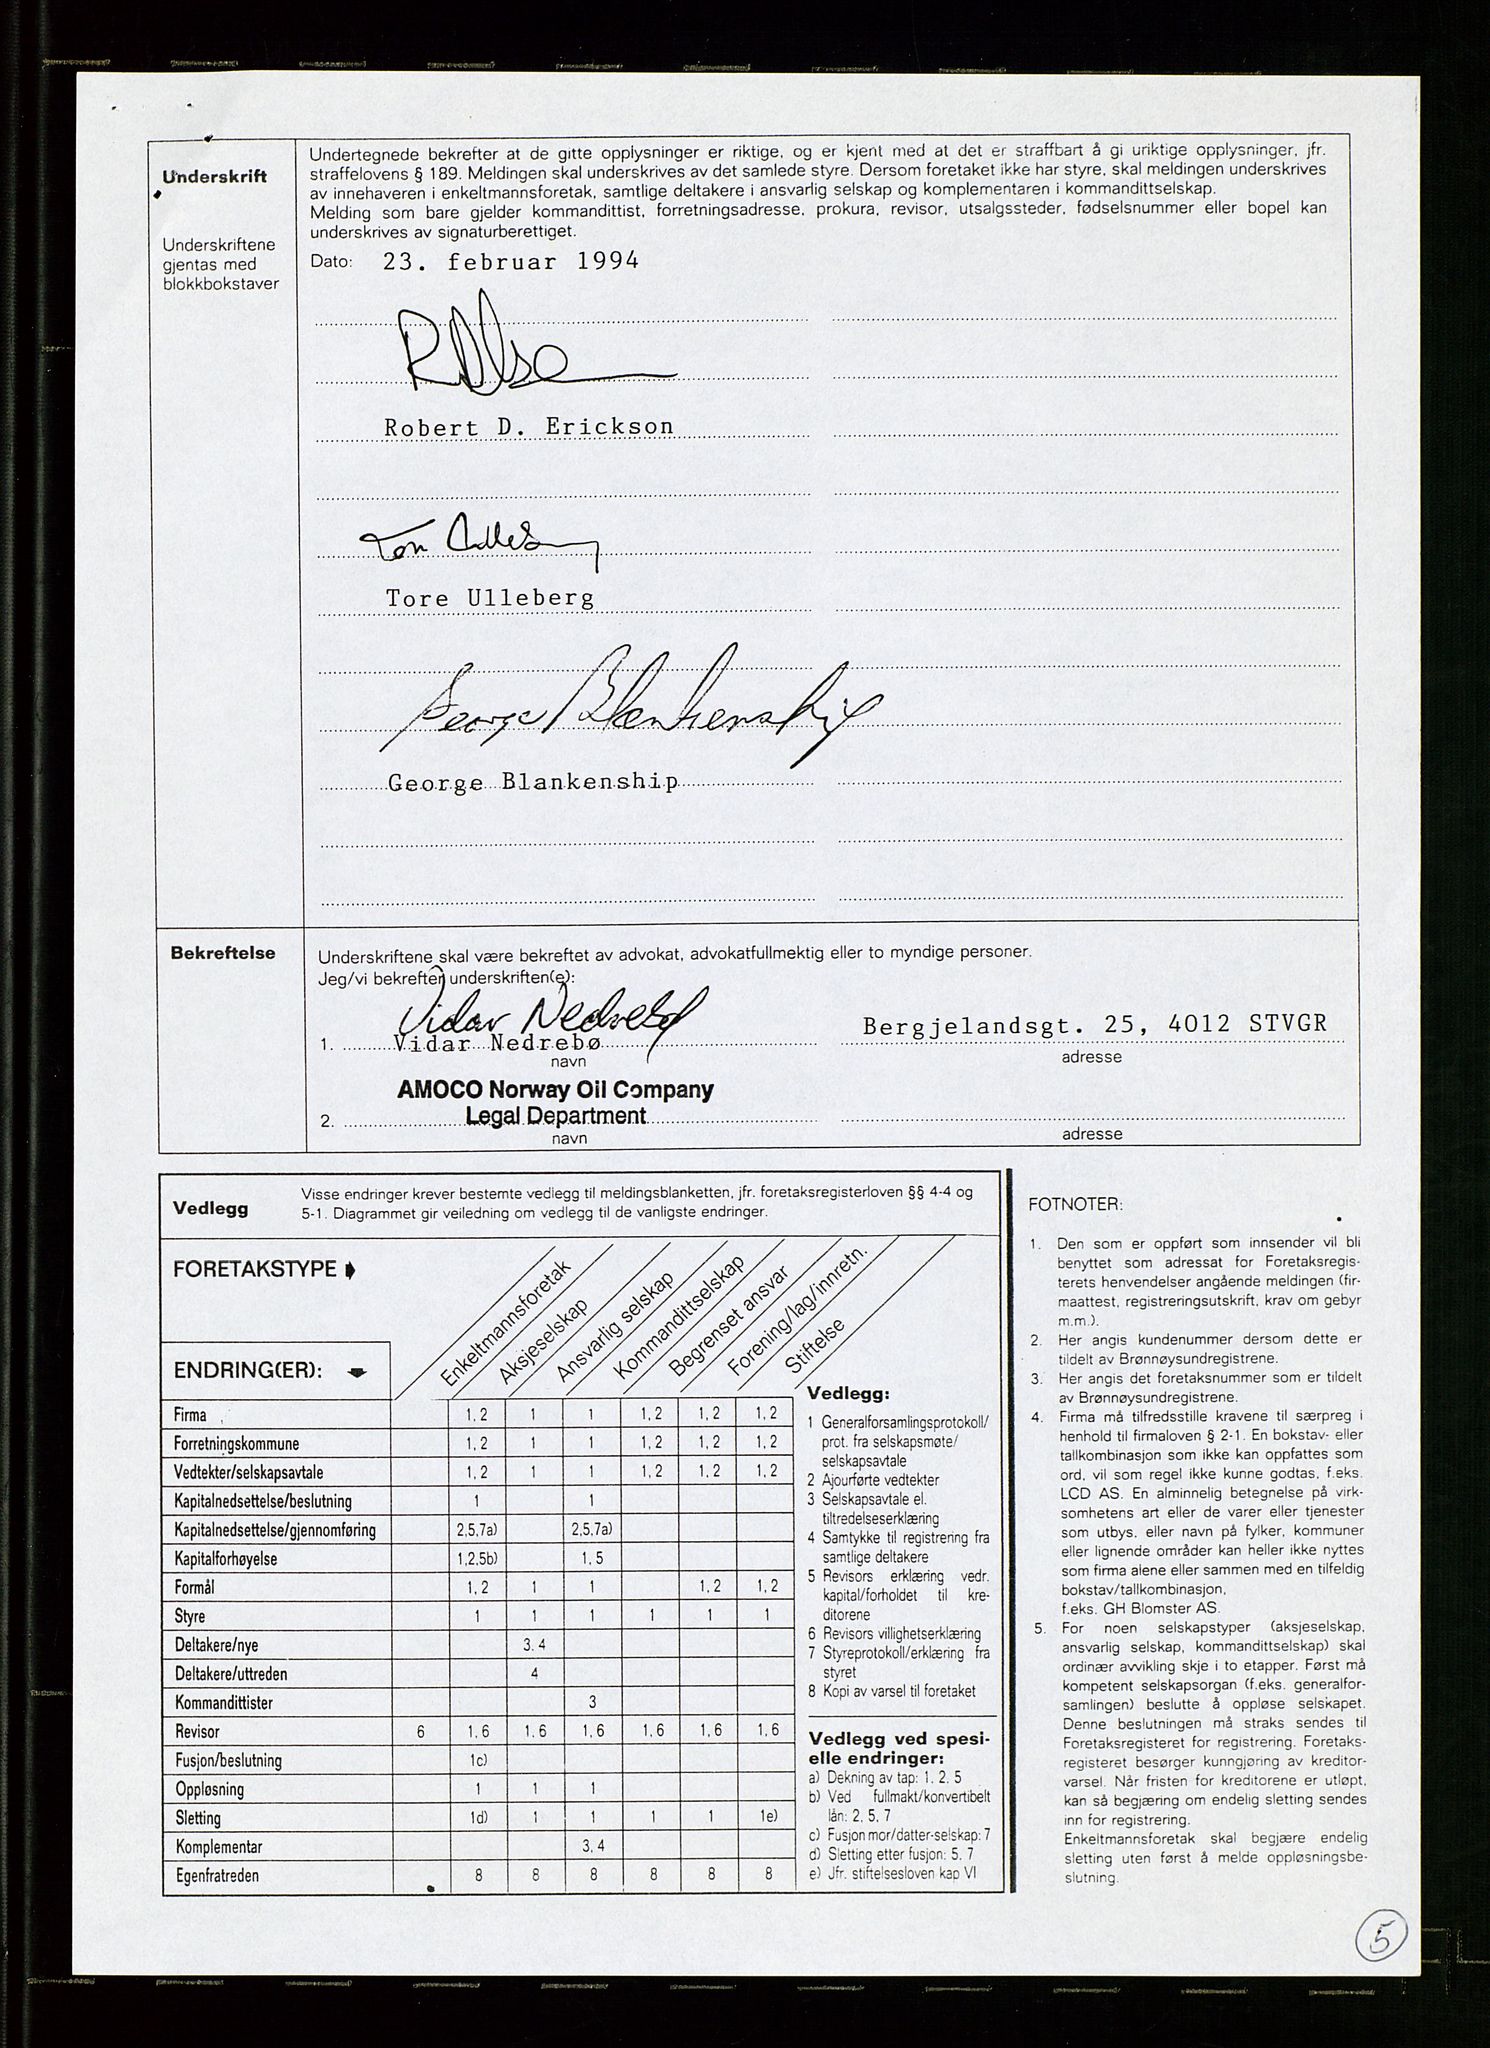 Underskrift
Underskriftene
gjentas med
blokkbokstaver
Undertegnede bekrefter at de gitte opplysninger er riktige, og er kjent med at det er straffbart å gi uriktige opplysninger, jfr.
straffelovens § 189. Meldingen skal underskrives av det samlede styre. Dersom foretaket ikke har styre, skal meldingen underskrives
av innehaveren i enkeltmannsforetak, samtlige deltakere i ansvarlig selskap og komplementaren i kommandittselskap.
Melding som bare gjelder kommandittist, forretningsadresse, prokura, revisor, utsalgssteder, fødselsnummer eller bopel kan
underskrives av signaturberettiget.
Dato: 23. februar 1994
Robert D. Erickson
Tore Ulleberg
George Blankenship
George Blankenship
Bekreftelse
Underskriftene skal være bekreftet av advokat, advokatfullmektig eller to myndige personer.
Jeg/vi bekrefter underskriften(e):
Vidar Nedrebø
1. Vidar Nedrebø Bergjelandsgt. 25, 4012 STVGR
navn adresse
AMOCO Norway Oil Company
2. Legal Department
navn adresse
Vedlegg
Visse endringer krever bestemte vedlegg til meldingsblanketten, jfr. foretaksregisterloven §§ 4-4 og
5-1. Diagrammet gir veiledning om vedlegg til de vanligste endringer.
FORETAKSTYPE
ENDRING(ER):
Enkeltmannsforetak
Aksjeselskap
Ansvarlig selskap
Kommandittselskap
Begrenset ansvar
Forening/lag/innretn.
Stiftelse
Firma 1, 2 1 1 1, 2 1, 2 1, 2
Forretningskommune 1, 2 1 1 1, 2 1, 2 1, 2
Vedtekter/selskapsavtale 1, 2 1 1 1, 2 1, 2 1, 2
Kapitalnedsettelse/beslutning 1 1
Kapitalnedsettelse/gjennomføring 2,5,7a) 2,5,7a)
Kapitalforhøyelse 1,2,5b) 1, 5
Formål 1, 2 1 1 1, 2 1, 2
Styre 1 1 1 1 1 1
Deltakere/nye 3, 4
Deltakere/uttreden 4
Kommandittister 3
Revisor 6 1, 6 1, 6 1, 6 1, 6 1, 6 1, 6
Fusjon/beslutning 1c)
Oppløsning 1 1 1
Sletting 1d) 1 1 1 1 1e)
Komplementar 3, 4
Egenfratreden 8 8 8 8 8 8
Vedlegg:
1 Generalforsamlingsprotokoll/
prot. fra selskapsmøte/
selskapsavtale
2 Ajourførte vedtekter
3 Selskapsavtale el.
tiltredelseserklæring
4 Samtykke til registrering fra
samtlige deltakere
5 Revisors erklæring vedr.
kapital/forholdet til kre-
ditorene
6 Revisors villighetserklæring
7 Styreprotokoll/erklæring fra
styret
8 Kopi av varsel til foretaket
Vedlegg ved spesi-
elle endringer:
a) Dekning av tap: 1, 2, 5
b) Ved fullmakt/konvertibelt
lån: 2, 5, 7
c) Fusjon mor/datter-selskap: 7
d) Sletting etter fusjon: 5, 7
e) Jfr. stiftelsesloven kap VI
FOTNOTER:
1. Den som er oppført som innsender vil bli
benyttet som adressat for Foretaksregis-
terets henvendelser angående meldingen (fir-
maattest, registreringsutskrift, krav om gebyr
m.m.).
2. Her angis kundenummer dersom dette er
tildelt av Brønnøysundregistrene.
3. Her angis det foretaksnummer som er tildelt
av Brønnøysundregistrene.
4. Firma må tilfredsstille kravene til særpreg i
henhold til firmaloven § 2-1. En bokstav- eller
tallkombinasjon som ikke kan oppfattes som
ord, vil som regel ikke kunne godtas, f.eks.
LCD AS. En alminnelig betegnelse på virk-
somhetens art eller de varer eller tjenester
som utbys, eller navn på fylker, kommuner
eller lignende områder kan heller ikke nyttes
som firma alene eller sammen med en tilfeldig
bokstav/tallkombinasjon,
f.eks. GH Blomster AS.
5. For noen selskapstyper (aksjeselskap,
ansvarlig selskap, kommandittselskap) skal
ordinær avvikling skje i to etapper. Først må
kompetent selskapsorgan (f.eks. generalfor-
samlingen) beslutte å oppløse selskapet.
Denne beslutningen må straks sendes til
Foretaksregisteret for registrering. Foretaks-
registeret besørger kunngjøring av kreditor-
varsel. Når fristen for kreditorene er utløpt,
kan så begjæring om endelig sletting sendes
inn for registrering.
Enkeltmannsforetak skal begjære endelig
sletting uten først å melde oppløsningsbe-
slutning.
5